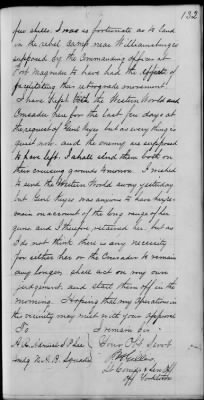 132
few shells. I was so fortunate as to land
in the rebel camp near Williamsburg is
supposed by the Commanding officer at
Fort Magruder to have had the effects of
facilitating their retrograde movement.
I have kept both the Western World and
Crusader here for the last few days at
the request of Genl Keyes but as every thing is
quiet now and the enemy are supposed
to have left. I shall send them both on
their cruising grounds tomorrow. I wished
to send the Western World away yesterday
but Genl Keyes was anxious to have her re-
main on account of the long range of her
guns and I therefore retained her but as
I do not think there is any necessity
for either her or the Crusader to remain
any longer, shall act on my own
judgment and start them off in the
morning. Hoping that my operations in
the vicinity may meet with your approval
To I remain Sir
A. R. Admiral S P Lee Your Obt Servt
Comdg N.A.B. Squadn
Lt Comdg &
Off Yorktown